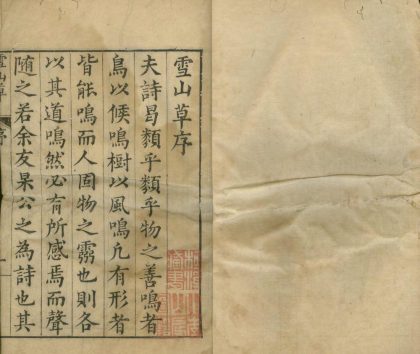 雪山草序
夫詩曷類乎類乎物之善鳴者
鳥以候鳴樹以風鳴凡有形者
皆能鳴而人固物之靈也則各
以其道鳴然必有所感焉而聲
隨之若余友杲公之為詩也其
雪山草 序 一